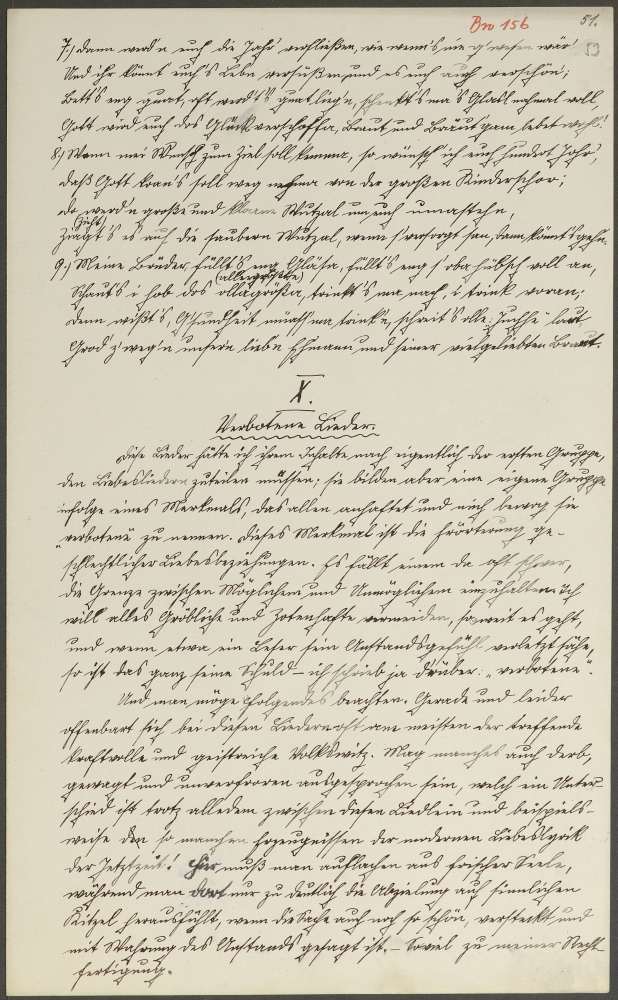 Bro 156
51.
7.) Dann werd'n euch die Jahr' verfließen, wie wenn's nie g'wesen wär'
Und ihr könnt euch's Leb'n versüßen und es euch auch verschön';
Gott wird euch das Glück verschaffa, Braut und Bräutigam lebet wohl!
8.) Wenn mei Wunsch zum Ziel soll kemma, so wünsch' ich euch hundert Jahr',
daß Gott koan's soll weg nehma von der großen Kinderschar;
do werd'n große und kloane Wutzal um euch umastehn,
(Zieht)
Ziagt's es auf die saubern Wutzal, wenn s' versorgt san, dann könnt's gehn.
9.) Meine Brüder, füllt's eng Gläsa, füllt's eng s' oba hübsch voll an,
(allergrößte)
Schaut's i hob dos ollagrößta, trinkt's ma nach, i trink voran;
Denn wißt's, G'sundheit müaß' ma trink'n, schreit's olle: „Juchhe" laut
Grod z'weg'n unsern liab'n Ehmann und seiner vielgeliebten Braut.
X.
Verbotene Lieder.
Diese Lieder hätte ich ihrem Inhalte nach eigentlich der ersten Gruppe,
den Liebesliedern zuteilen müssen; sie bilden aber eine eigene Gruppe
infolge eines Merkmals, das allen anhaftet und mich bewog sie
„verbotene" zu nennen. Dieses Merkmal ist die Erörterung ge-
schlechtlicher Liebesbeziehungen. Es fällt einem da oft schwer,
die Grenze zwischen Möglichem und Unmöglichem einzuhalten. Ich
will alles Gröbliche und Zotenhafte vermeiden, soweit es geht,
und wenn etwa ein Leser sein Anstandsgefühl verletzt sähe,
so ist das ganz seine Schuld – ich schrieb ja drüber: „verbotene".
Und man möge Folgendes beachten. Gerade und leider
offenbart sich bei diesen Liedern oft am meisten der treffende
kraftvolle und geistreiche Volkswitz. Mag manches auch derb,
gewagt und unverfroren ausgesprochen sein, welch ein Unter-
schied ist trotz alledem zwischen diesen Liedlein und beispiels-
weise den so manchen Erzeugnissen der modernen Liebeslyrik
der Jetztzeit! Hier muß man auflachen aus frischer Seele,
während man dort nur zu deutlich die Abzielung auf sinnlichen
Kitzel herausfühlt, wenn die Sache auch noch so schön, versteckt und
mit Wahrung des Anstands gesagt ist. – Soviel zu meiner Recht-
fertigung.